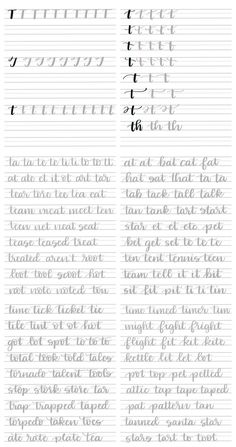 T T T T T T T T T T
T T T T T T T T
t t t t t t t t t t t
t t t t t
t t t t t
t t t t t
t t t t t
t t t t
t t t t
th th th
ta ta te to ti ti to to ti
at ate et it ot art tar
tear tore tee tea eat
team meat meet ten
teen net neat seat
tease teased treat
treated aren't root
loot tool scoot hot
not note noted ton
time tick ticket tic
tile tint ot ot hot
got lot spot to to to
total took told tales
tornado talent tools
stop stork store tar
trap trapped taped
torpedo taken toes
ate orate plate tea
at at bat cat fat
hat sat that ta ta
tab tack tall talk
tan tank tart start
star et et etc pet
bet get set to to to
ten tent tennis teen
team tell it it bit
sit fit pit ti ti tin
time timed timer tim
might fight fright
flight fit kit kite
kettle let let lot
pot top pet petted
attic tap tape taped
pat pattern tan
tanned santa star
stars tart to toot